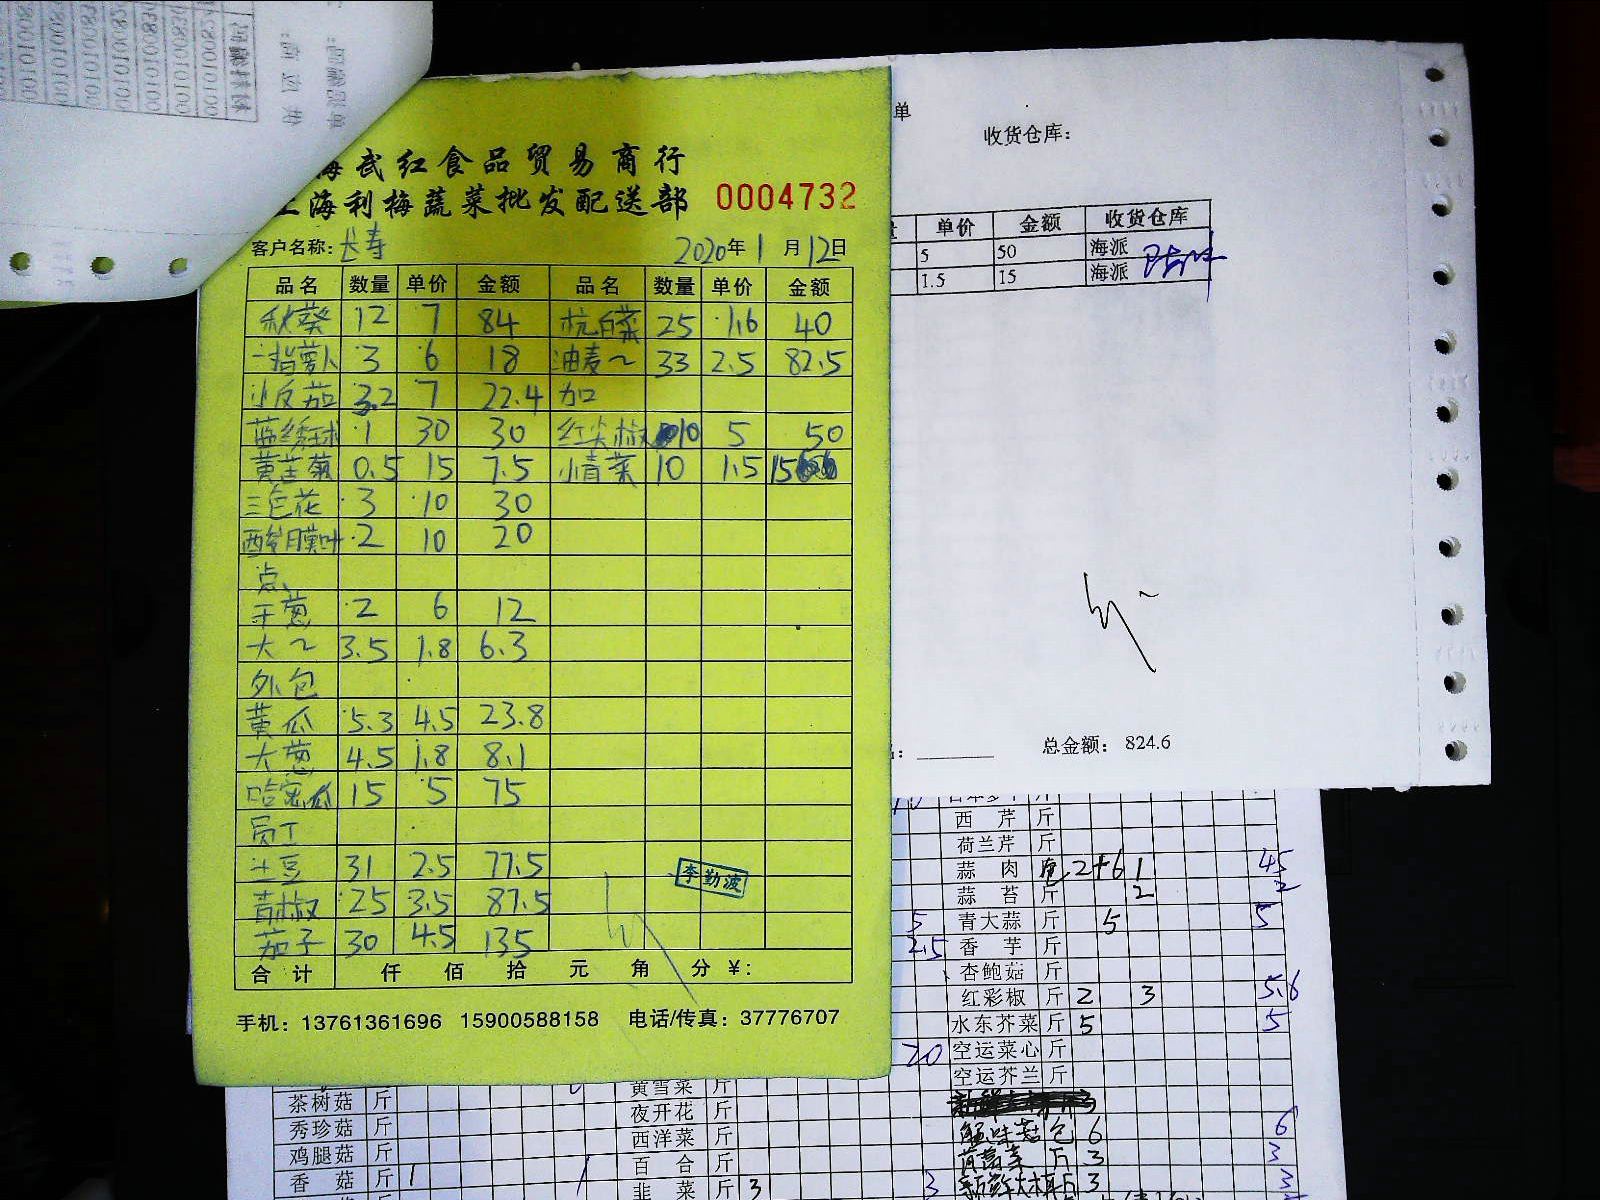 海武红食品贸易商行
上海利梅蔬菜批发配送部 0004732
客户名称: 长寿 2020年1月12日
品名 数量 单价 金额 品名 数量 单价 金额
秋葵 12 7 84 杭白菜 25 1.6 40
一指萝卜 3 6 18 油麦~ 33 2.5 82.5
小反茄 3.2 7 22.4 加
蓝绣球 1 30 30 红尖椒 10 5 50
黄芷菊 0.5 15 7.5 小青菜 10 1.5 15
三色花 3 10 30
酸膜叶 2 10 20
点
干葱 2 6 12
大~ 3.5 1.8 6.3
外包
黄瓜 5.3 4.5 23.8
大葱 4.5 1.8 8.1
哈密瓜 15 5 75
员工
土豆 31 2.5 77.5
青椒 25 3.5 87.5
茄子 30 4.5 135
李勤波
合计 仟 佰 拾 元 角 分 ¥:
手机: 13761361696 15900588158 电话/传真: 37776707
单
收货仓库:
单价 金额 收货仓库
5 50 海派
1.5 15 海派
总金额: 824.6
西芹 斤
荷兰芹 斤
蒜肉 2+6 1 45
蒜苔 斤 2 2
5 青大蒜 斤 5 5
2.5 香芋 斤
杏鲍菇 斤
红彩椒 斤 2 3 5.6
水东芥菜 斤 5 5
20 空运菜心 斤
空运芥兰 斤
蟹味菇 包 6 6
茼蒿菜 斤 3 3
3 3
茶树菇 斤 黄雪菜 斤
秀珍菇 斤 夜开花 斤
鸡腿菇 斤 西洋菜 斤
香菇 斤 1 1 百合 斤
韭菜 斤 3 3